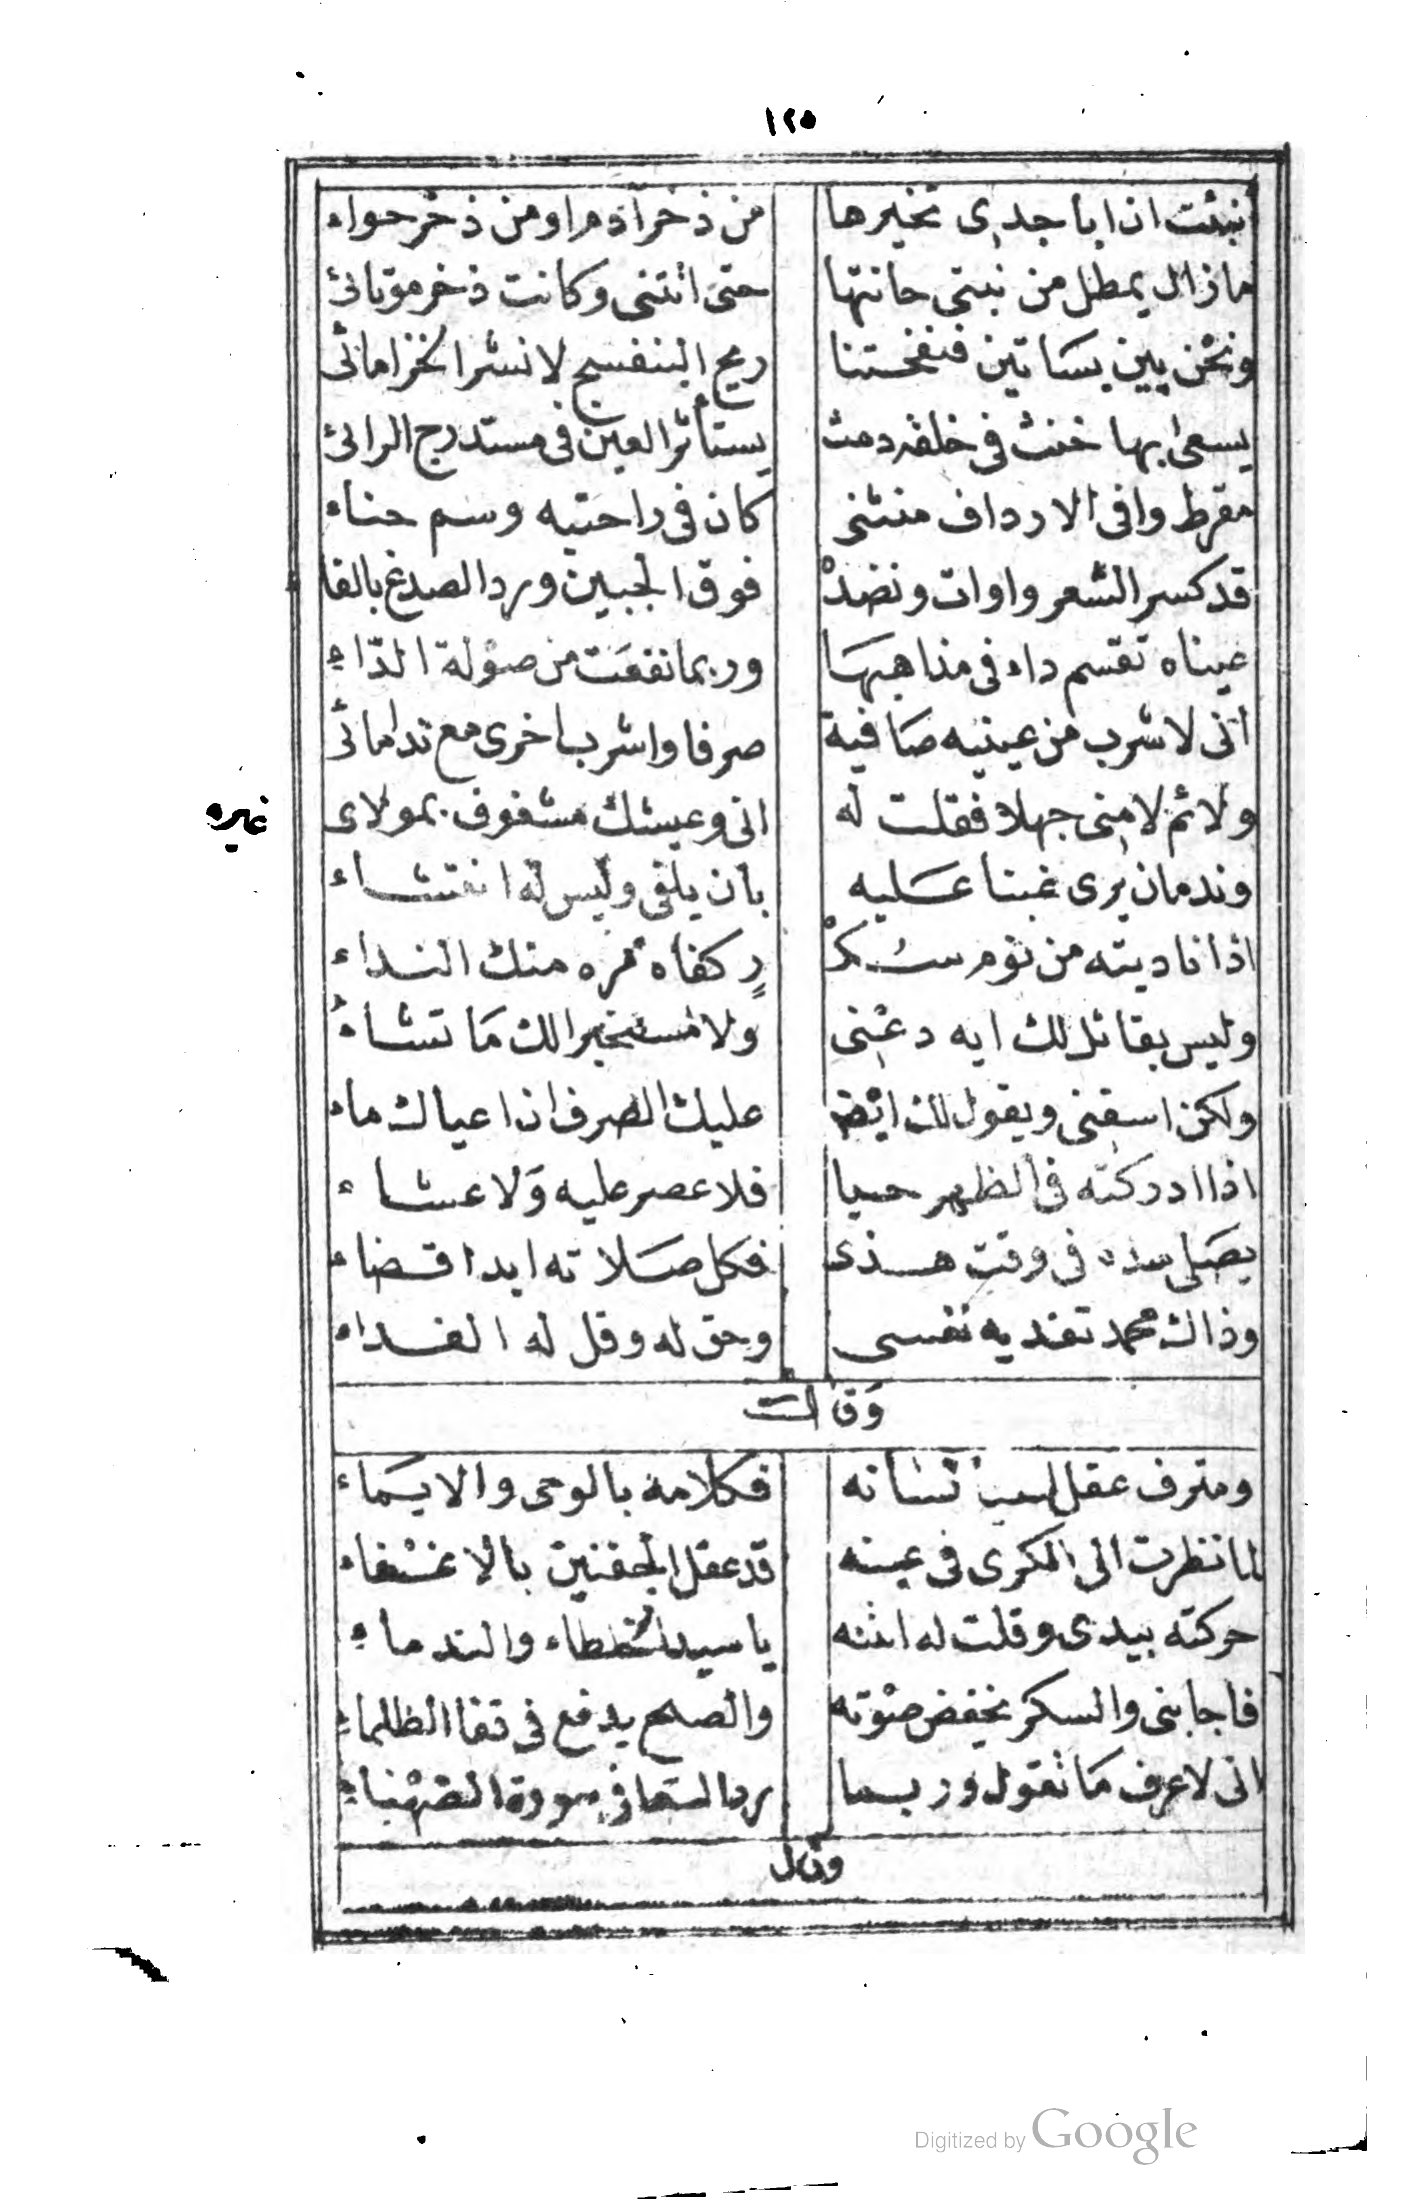 ١٢٥
أنبئت ان ابا جدى تخيرها من ذخر آدم او من ذخر حواء
مازال يمطل من نبتى حانتها حتى اتتنى وكانت ذخر موتائ
ونحن بين بساتين فنفحتنا ريح البنفسج لا نشر الخزامائى
يسعى بها خنث فى خلقه دمث يستأثر العين فى مستدرج الرائئ
مقرط وافى الارداف منثنى كان فى راحتيه وسم حناء
قد كسر الشعر واوات ونضدْ فوق الجبين ورد الصدغ بالفا
عيناه تقسم داء فى مذاهبها وربما نفعت من صولة الداء
انى لاشرب من عينيه صافية صرفا واشرب اخرى مع ندامائى
ولائم لامنى جهلا فقلت له انى وعيشك مشغوف بمولاى
غيره
وندمان يرى غبنا عليه بان يلفى وليس له انتشاء
اذا ناديته من نوم سكْ رٍ كفاه مره منك النداء
وليس بقائل لك ايه دعنى ولا مستخبرا لك ما تشاءُ
ولكن اسقنى ويقول لك ايضا عليك الصرف اذا عياك ماء
اذا ادركته فى الظهر حيا فلا عصر عليه ولا عشاء
يصلى هذه فى وقت هذى فكل صلاته ابدا قضاء
وذاك محمد تفديه نفسى وحق له وقل له الفداء
وقال
ومترف عقل لسانه فكلامه بالوحى والايماء
لما نظرت الى الكرى فى عينه قد عقل الجفنين بالاغفاء
حركته بيدى وقلت له انتبه يا سيد الخلطاء والندماء
فاجابنى والسكر يخفض صوته والصبح يدفع فى قفا الظلماء
انى لاعرف ما تقول وربما رد التعافى سورة الصهباء
وقال
Digitized by Google